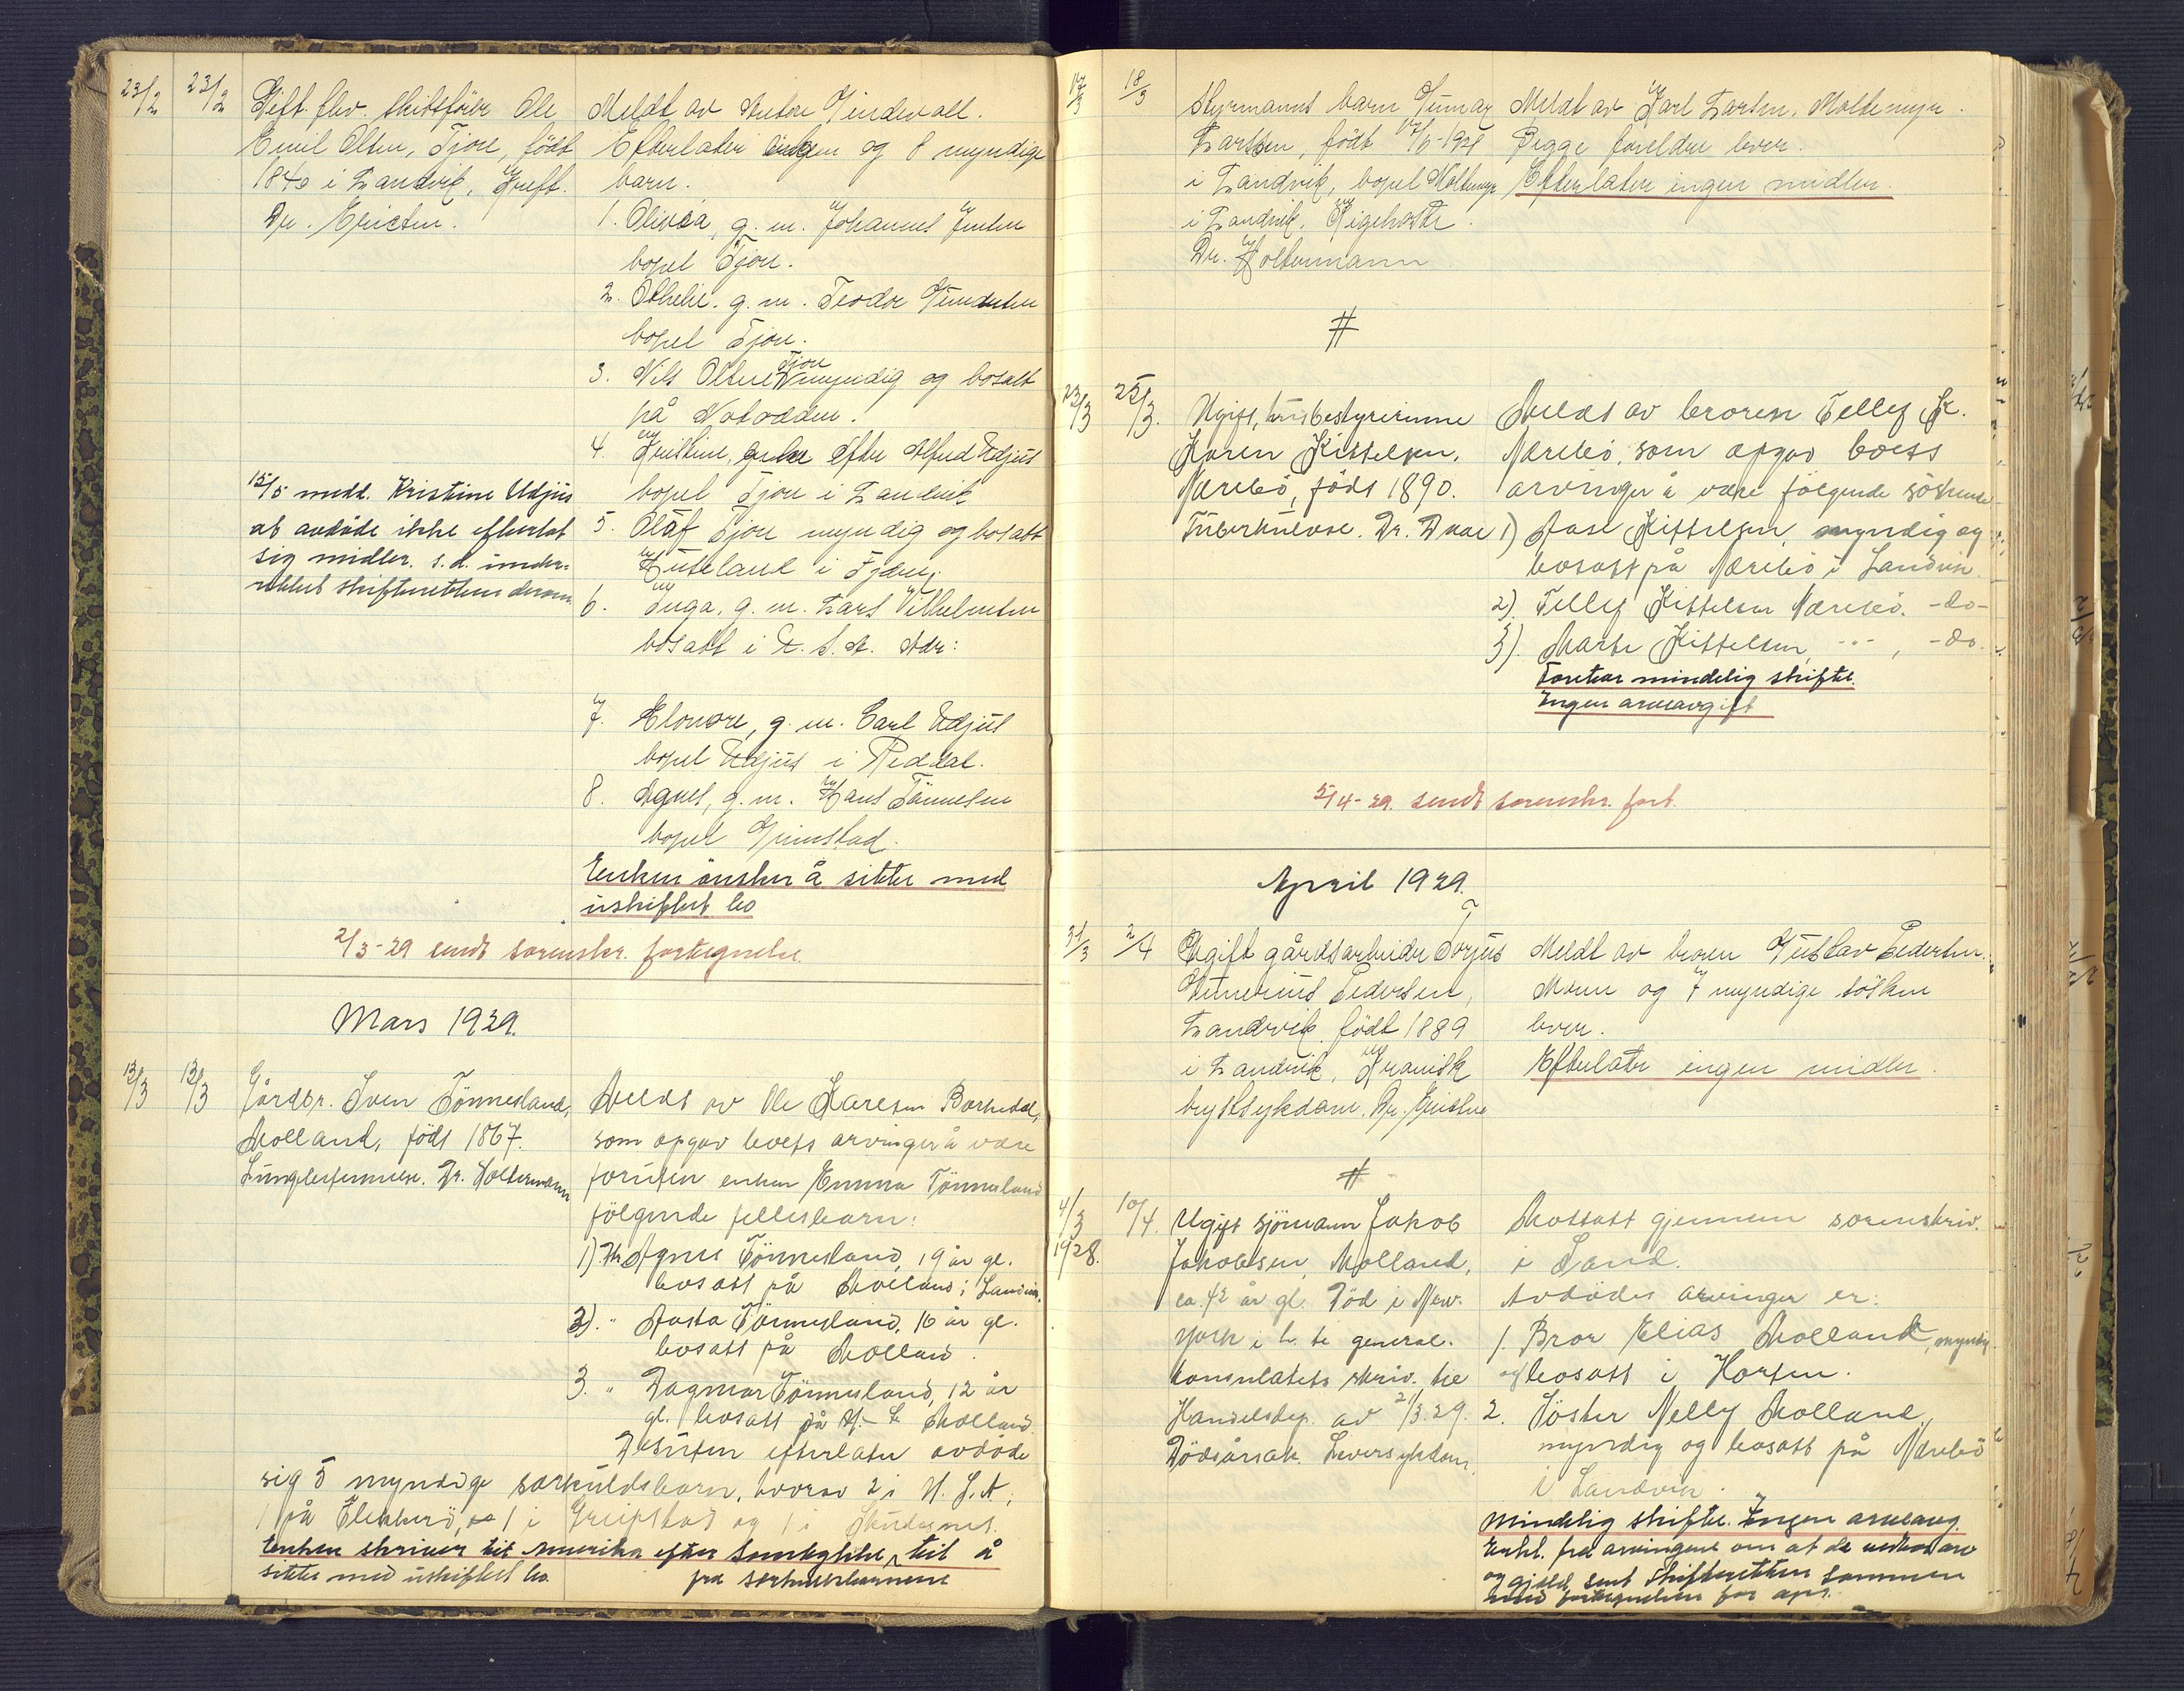 23/2 23/2 Gift. flev. skibsförer Ole
Emil Olsen, Tjore, födt
1840 i Landvik, Kreft.
Dr. Ericsen.
Meldt av Anton Gundevall.
Efterlater enken og 8 myndige
barn.
1. Olivia, g. m. Johannes Jensen
bopel Tjore.
2. Othelie. g. m. Teodor Gundersen
bopel Tjore.
3. Nils Olsen Tjore myndig og bosatt
på Notodden.
4. Kristine, enke efter Alfred Udjus
bopel Tjore i Landvik
5. Olaf Tjore myndig og bosatt
i Fjære.
6. Inga, g. m. Lars Vilhelmsen
bosatt i U. S. A. Adr:
7. Elonore, g. m. Carl Udjus
bopel Udjus i Reddal.
8. Agnes, g. m. Hans Tönnesen
bopel Grimstad.
Enken önsker å sitte med
uskiftet bo
15/5 medd. Kristine Udjus
at avdöde ikke efterlot
sig midler. s.d. under-
rettet skifteretten derom.
2/3-29 sendt sorenskr. fortegnelse.
Mars 1929.
12/3 13/3 Gårdbr. Sven Tönnesland,
Molland, födt 1867.
Lungebetennelse. Dr. Holtermann
Meldt av Ole Karlsen Borkedal,
som opgav boets arvinger å være
foruten enken Emma Tönnesland
fölgende fellesbarn:
1) Agnes Tönnesland, 19 år gl.
bosatt på Molland i Landvik.
2). " Aasta Tönnesland, 16 år gl.
bosatt på Molland.
3. " Dagmar Tönnesland, 12 år
gl. bosatt på Molland.
Desuten efterlater avdöde
sig 5 myndige særkuldsbarn, hvorav 2 i U. S. A,
1 på Flekkerö, 1 i Greipstad og 1 i
Enken skriver til Amerika efter samtykke til å
sitte med uskiftet bo. fra særkulsbarnene
17/3 18/3 Styrmanns barn Gunnar
Larsen, födt 17/6-1928
i Landvik, bopel Moltemyr
i Landvik. Kigehoste.
Dr. Holtermann
Meldt av Karl Larsen, Moltemyr.
Begge foreldre lever.
Efterlater ingen midler.
#
23/3 25/3. Ugift, husbestyrerinne
Karen Kittelsen,
Nærebö, födt 1890.
Tuberkulose. Dr. Daae
Meldt av broren Tellef K.
Nærebö, som opgav boets
arvinger å være fölgende söskende
1) Aase Kittelsen, myndig og
bosatt på Nærebö i Landvik.
2). Tellef Kittelsen Nærebö. -do-
3). Marte Kittelsen, -"-, -do.
Foretar mindelig skifte.
Ingen arveavgift
5/4-29. sendt sorenskr. fort.
April 1929.
31/3 2/4 Ugift gårdsarbeider Torjus
Pedersen,
Landvik, födt 1889
i Landvik, Kronisk
brystsykdom. Dr. Ericsen
Meldt av broren Gustav Pedersen.
Moren og 7 myndige sösken
lever.
Efterlater ingen midler.
#
4/3 1928. 10/4. Ugift sjömann Jakob
Jakobsen, Molland,
ca. 42 år gl. Död i New-
York i h. t. general-
konsulatets skriv. til
Handelsdep. av 21/3.29.
Dödsårsak Leversykdom.
Mottatt gjennem sorenskriv.
i Sand.
Avdödes arvinger er:
1. Bror Elias Molland, myndig
og bosatt i Horten.
2. Söster Nelly Molland,
myndig og bosatt på Nærebö
i Landvik.
Mindelig skifte. Ingen arveavg.
Erkl. fra arvingene om at de vedtar arv
og gjeld, sent skifteretten sammen
med fortegnelsen for apr.